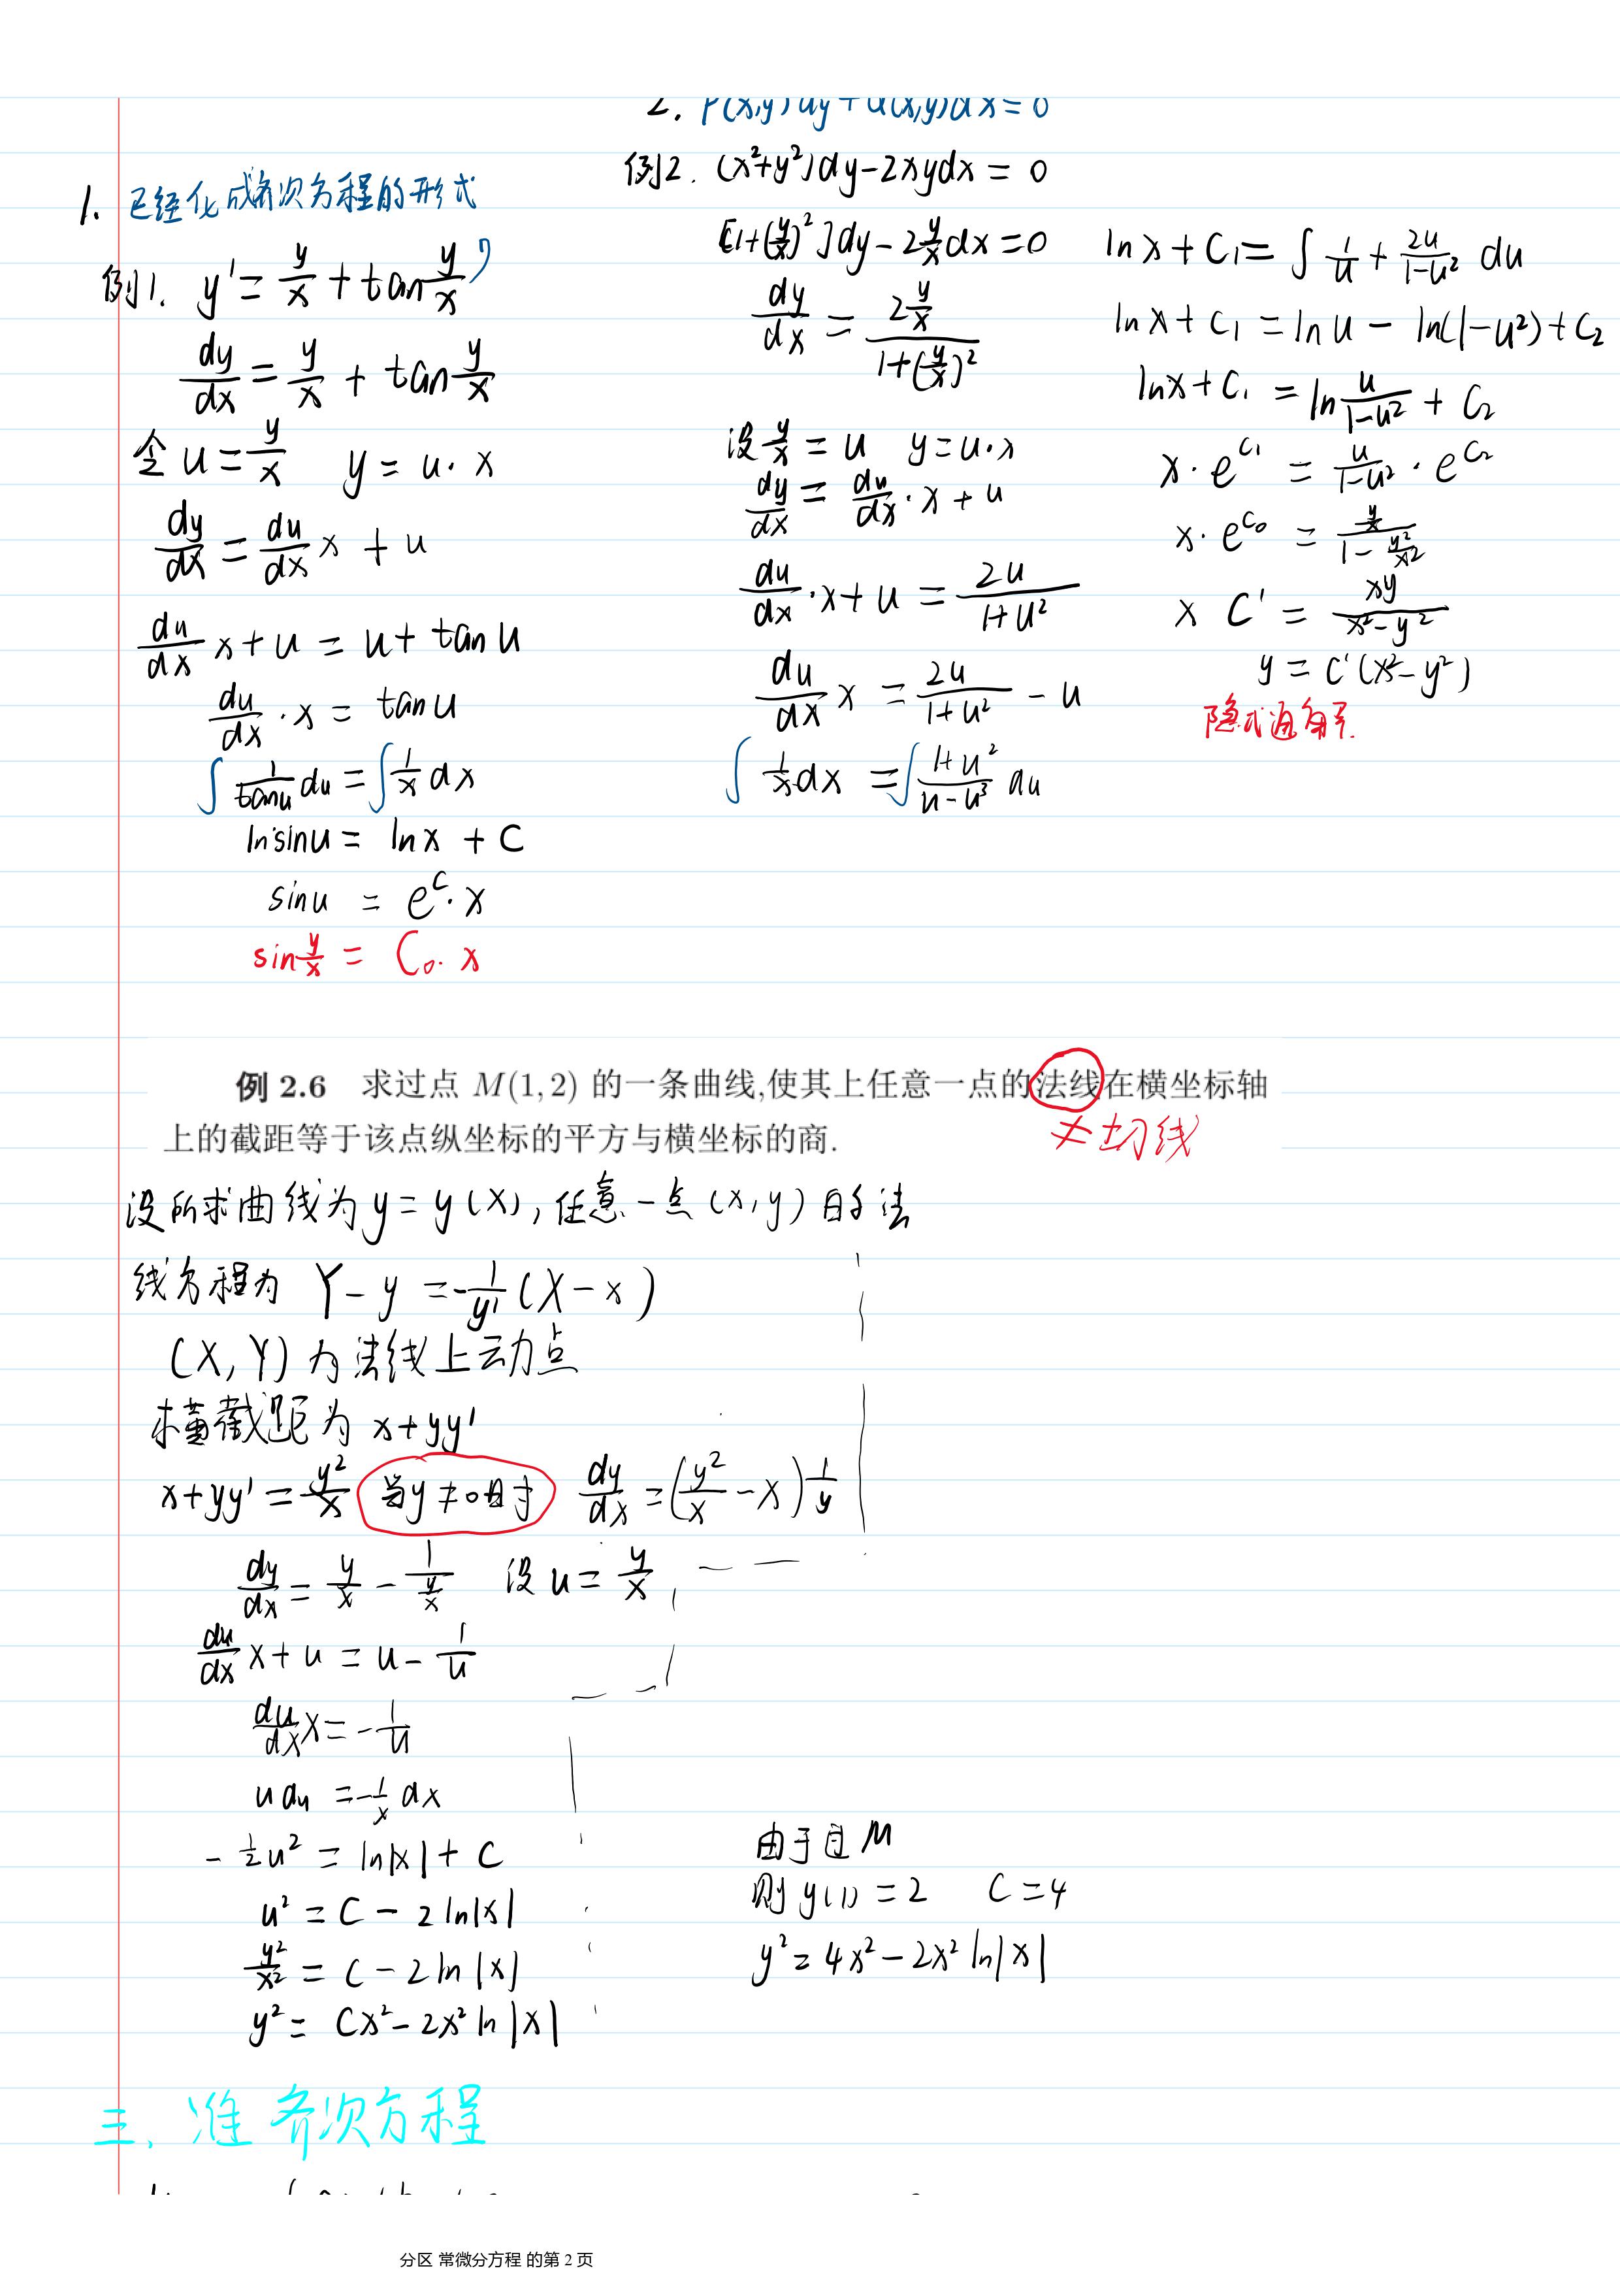 1. 已经化成齐次方程的形式
例1. y' = y/x + tan y/x
dy/dx = y/x + tan y/x
令 u = y/x  y = u·x
dy/dx = du/dx x + u
du/dx x + u = u + tan u
du/dx · x = tan u
∫ 1/tanu du = ∫ 1/x dx
ln sinu = ln x + C
sinu = e^C · x
sin y/x = C₀ · x
2. P(x,y)dy + Q(x,y)dx = 0
例2. (x²+y²)dy - 2xydx = 0
[1+(y/x)²]dy - 2 y/x dx = 0
dy/dx = 2 y/x / 1+(y/x)²
设 y/x = u  y = u·x
dy/dx = du/dx · x + u
du/dx · x + u = 2u / 1+u²
du/dx x = 2u / 1+u² - u
∫ 1/x dx = ∫ 1+u² / u-u³ du
ln x + C₁ = ∫ 1/u + 2u/1-u² du
ln x + C₁ = ln u - ln(1-u²) + C₂
ln x + C₁ = ln u/1-u² + C₂
x · e^C₁ = u/1-u² · e^C₂
x · e^C₀ = y/x / 1 - y²/x²
x C' = xy / x²-y²
y = C'(x²-y²)
隐式通解.
例 2.6 求过点 M(1,2) 的一条曲线,使其上任意一点的法线在横坐标轴
上的截距等于该点纵坐标的平方与横坐标的商.
≠切线
设所求曲线为 y = y(x), 任意一点 (x,y) 的法
线方程为 Y - y = -1/y' (X - x)
(X, Y) 为法线上动点
求横截距为 x + yy'
x + yy' = y²/x 当y≠0时 dy/dx = (y²/x - x) 1/y
dy/dx = y/x - 1/(y/x) 设 u = y/x
du/dx x + u = u - 1/u
du/dx x = -1/u
u du = -1/x dx
-½u² = ln|x| + C
u² = C - 2 ln|x|
y²/x² = C - 2 ln|x|
y² = Cx² - 2x² ln|x|
由于过 M
则 y(1) = 2  C = 4
y² = 4x² - 2x² ln|x|
三. 准齐次方程
分区 常微分方程 的第 2 页